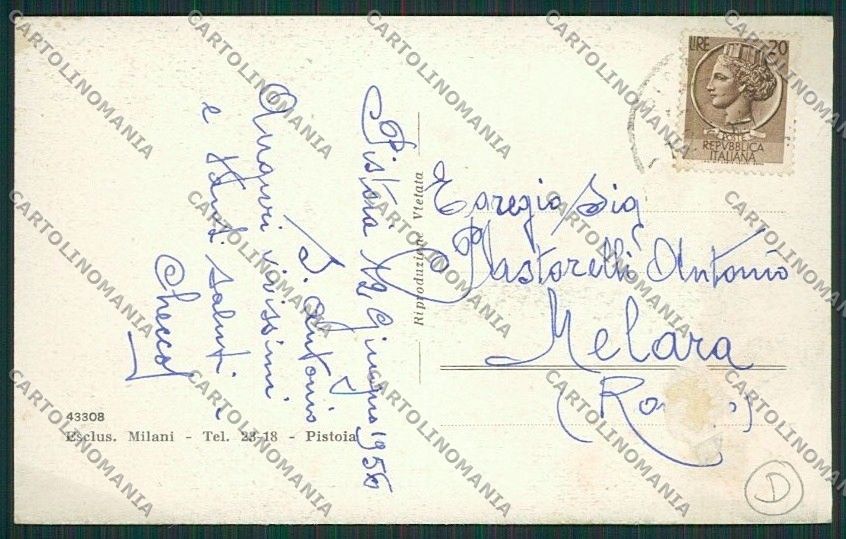 Pistoia 12 Giugno 1956
S. Antonio
Auguri vivissimi
e tanti saluti
Checco
Riproduzione Vietata
LIRE 20
POSTE
REPVBBLICA
ITALIANA
Egregio Sig
Pastorelli Antonio
Melara
(Ro
43308
Esclus. Milani - Tel. 23-18 - Pistoia
D
CARTOLINOMANIA